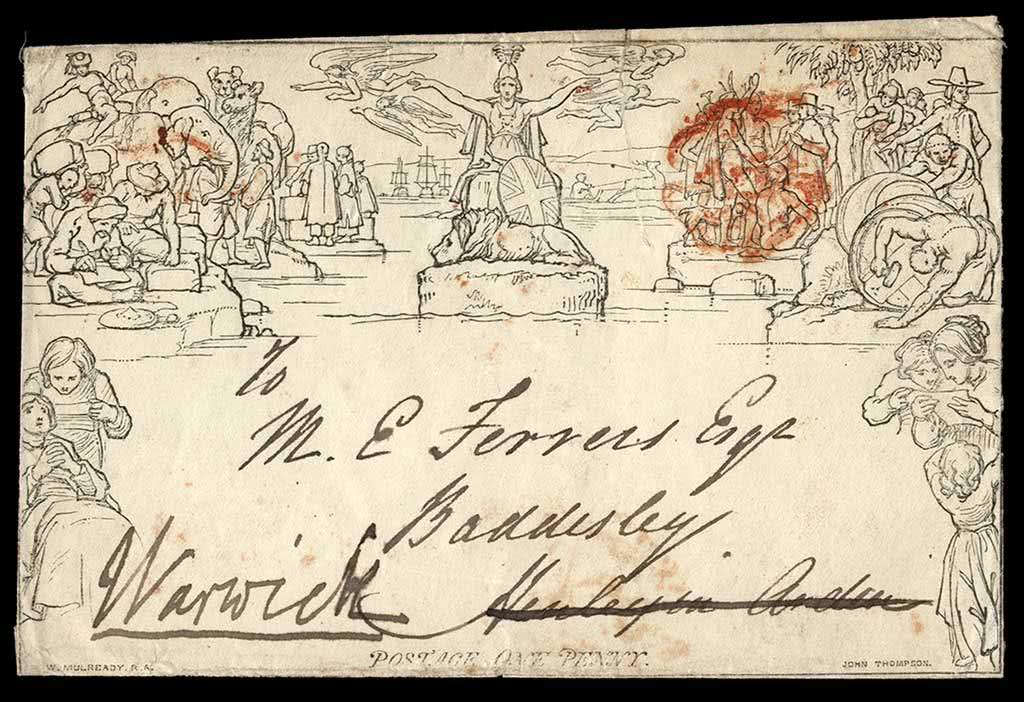 To
M. E Ferrers Esqr
Baddesley
Warwick Henley in Arden
POSTAGE ONE PENNY.
W. MULREADY. R.A. JOHN THOMPSON.